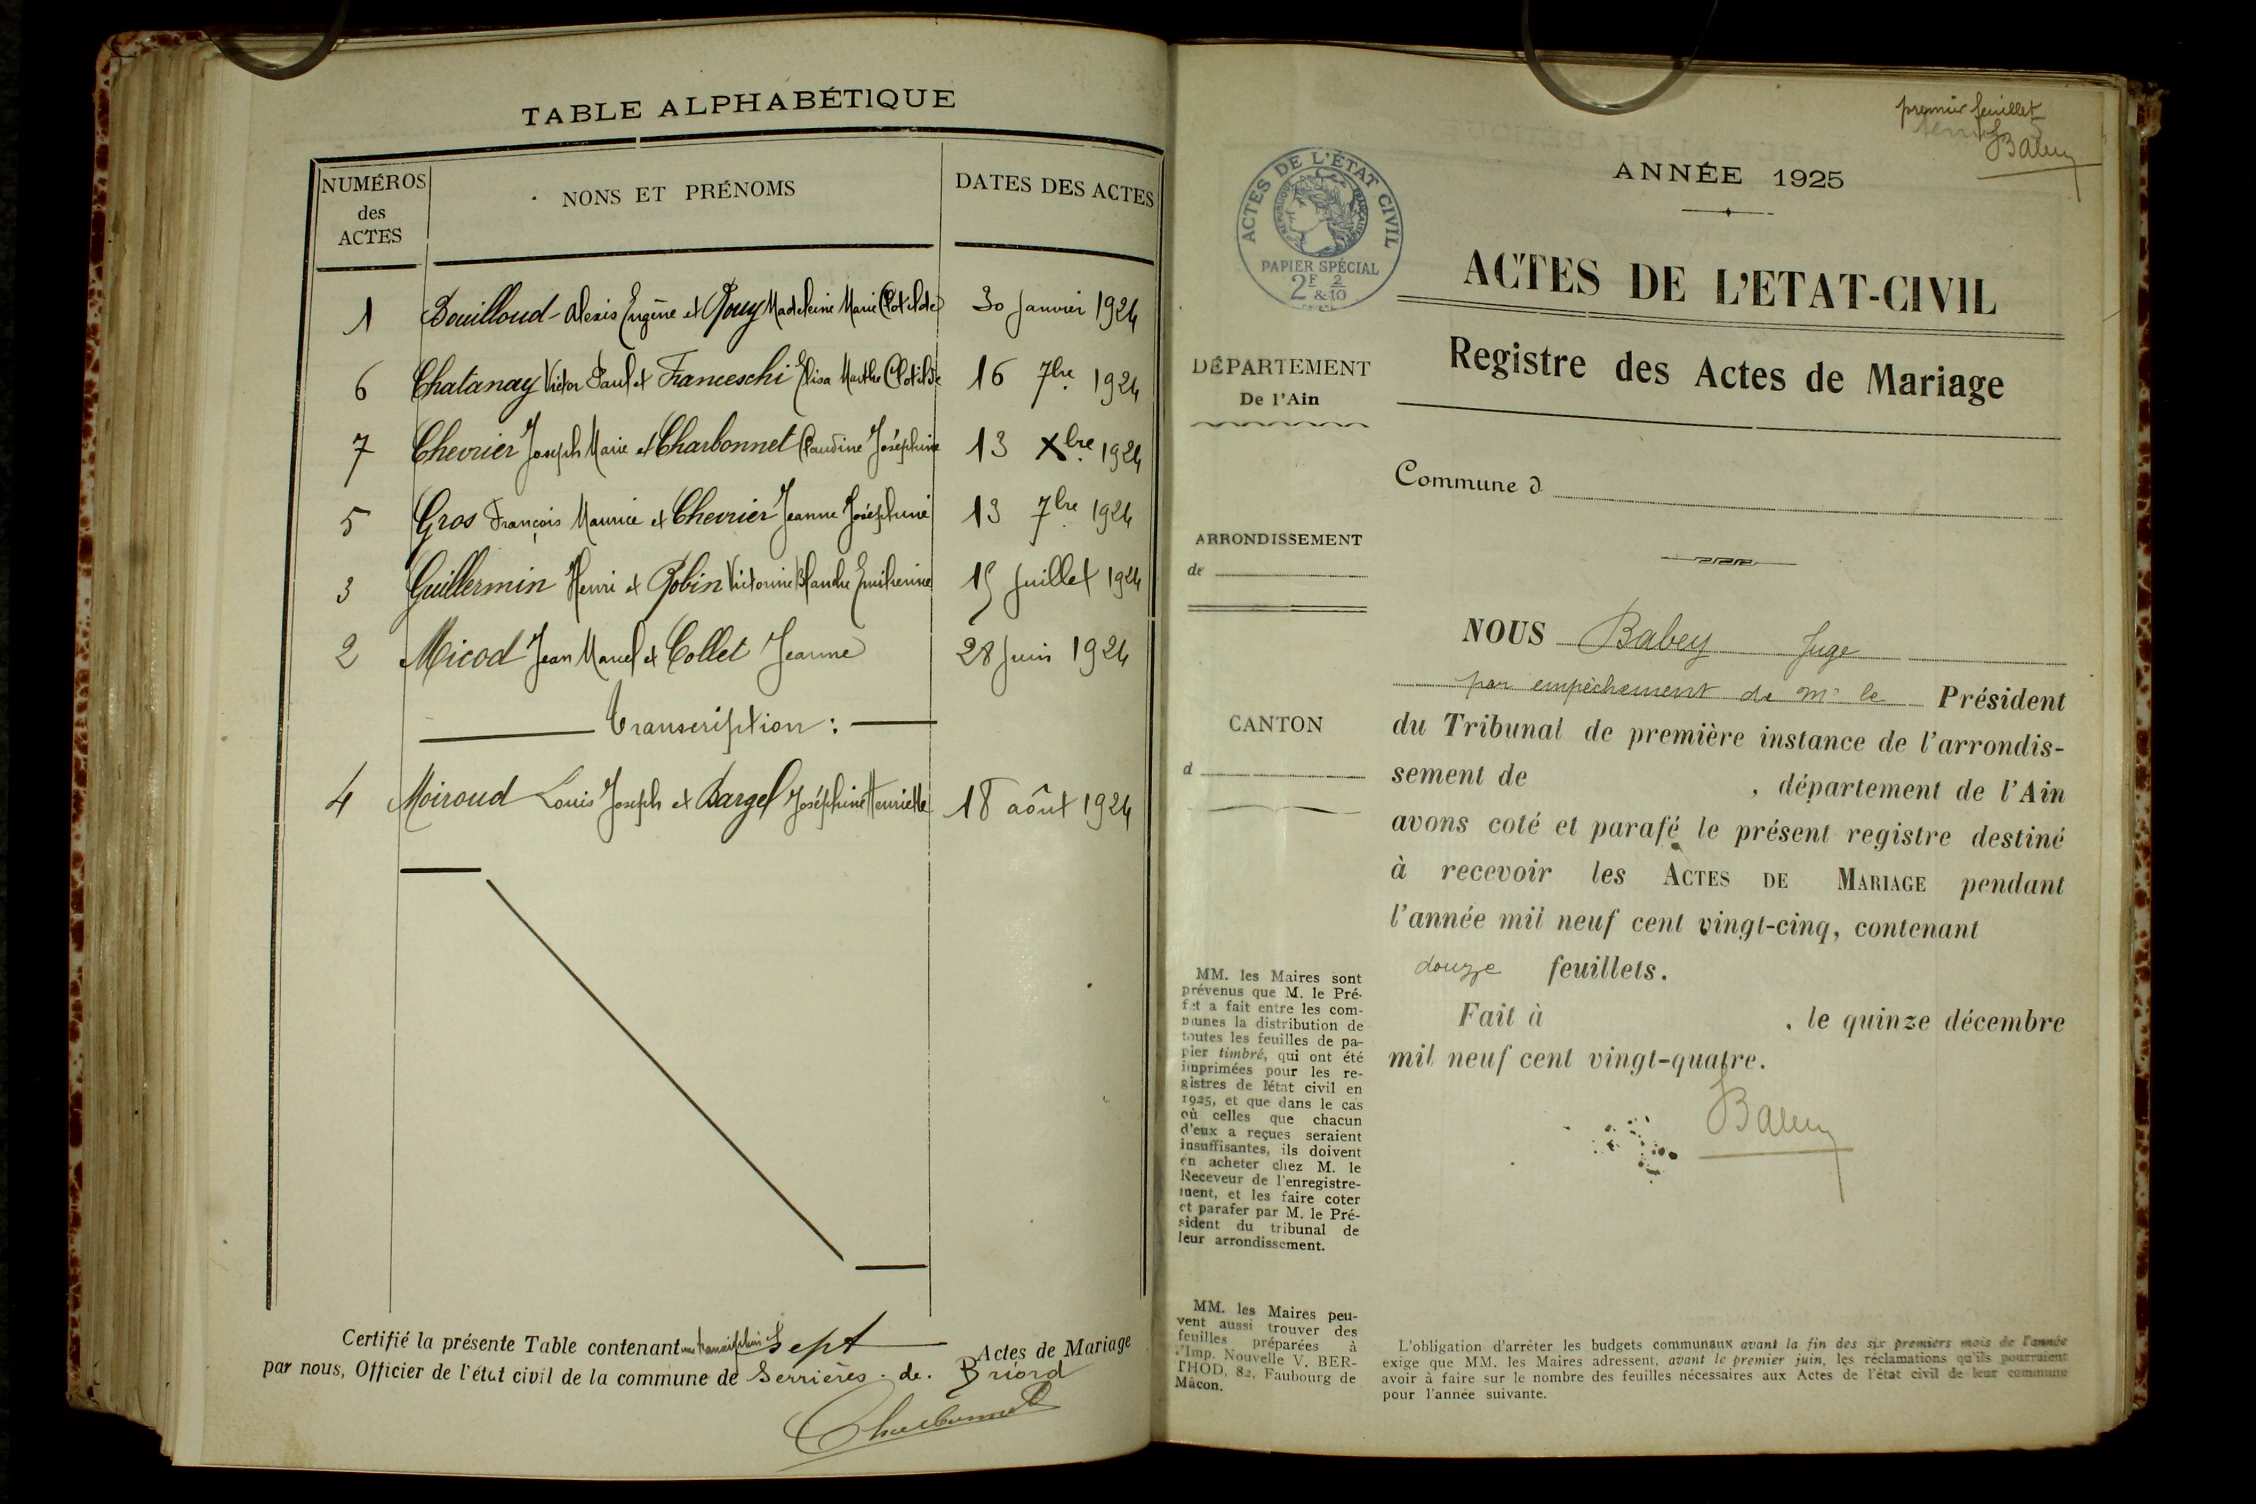 TABLE ALPHABÉTIQUE
NUMÉROS
des
ACTES
NONS ET PRÉNOMS
DATES DES ACTES
1 Bouilloud Alexis Eugène et Madeleine Marie Clotilde 30 Janvier 1924
6 Chatanay Victor Paul et Franceschi Elisa Marthe Clotilde 16 7bre 1924
7 Chevrier Joseph Marie et Charbonnet Claudine Joséphine 13 Xbre 1924
5 Gros François Maurice et Chevrier Jeanne Joséphine 13 7bre 1924
3 Guillermin Henri et Robin Victorine Blanche 15 Juillet 1924
2 Micod Jean Marcel et Collet Jeanne 28 Juin 1924
Transcription :
4 Moiroud Louis Joseph et Joséphine Henriette 18 août 1924
Certifié la présente Table contenant une transcription Sept Actes de Mariage
par nous, Officier de l'état civil de la commune de Serrières . de . Briord
premier feuillet
Babey
ANNÉE 1925
ACTES DE L'ÉTAT CIVIL
RÉPUBLIQUE FRANÇAISE
PAPIER SPÉCIAL
2F 2
& 10
ACTES DE L'ETAT-CIVIL
Registre des Actes de Mariage
DÉPARTEMENT
De l'Ain
Commune d
ARRONDISSEMENT
de
CANTON
d
NOUS Babey Juge
par empêchement de Mr le Président
du Tribunal de première instance de l'arrondis-
sement de , département de l'Ain
avons coté et parafé le présent registre destiné
à recevoir les ACTES DE MARIAGE pendant
l'année mil neuf cent vingt-cinq, contenant
douze feuillets.
Fait à , le quinze décembre
mil neuf cent vingt-quatre.
Babey
MM. les Maires sont
prévenus que M. le Pré-
fet a fait entre les com-
munes la distribution de
toutes les feuilles de pa-
pier timbré, qui ont été
imprimées pour les re-
gistres de l'état civil en
1925, et que dans le cas
où celles que chacun
d'eux a reçues seraient
insuffisantes, ils doivent
en acheter chez M. le
Receveur de l'enregistre-
ment, et les faire coter
et parafer par M. le Pré-
sident du tribunal de
leur arrondissement.
MM. les Maires peu-
vent aussi trouver des
feuilles préparées à
l'Imp. Nouvelle V. BER-
THOD, 82, Faubourg de
Mâcon.
L'obligation d'arrêter les budgets communaux avant la fin des six premiers mois de l'année
exige que MM. les Maires adressent, avant le premier juin, les réclamations qu'ils pourraient
avoir à faire sur le nombre des feuilles nécessaires aux Actes de l'état civil de leur commune
pour l'année suivante.